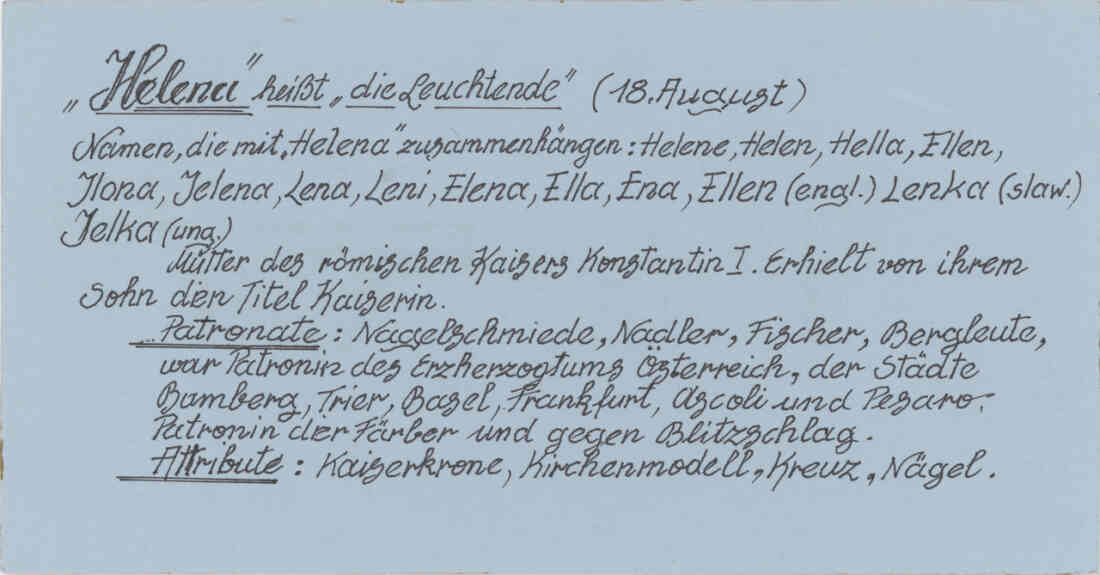 „Helena" heißt „die Leuchtende" (18. August)
Namen, die mit „Helena" zusammenhängen: Helene, Helen, Hella, Ellen,
Ilona, Jelena, Lena, Leni, Elena, Ella, Ena, Ellen (engl.) Lenka (slaw.)
Jelka (ung.)
Mutter des römischen Kaisers Konstantin I. Erhielt von ihrem
Sohn den Titel Kaiserin.
Patronate: Nagelschmiede, Nadler, Fischer, Bergleute,
war Patronin des Erzherzogtums Österreich, der Städte
Bamberg, Trier, Basel, Frankfurt, Ascoli und Pesaro.
Patronin der Färber und gegen Blitzschlag.
Attribute: Kaiserkrone, Kirchenmodell, Kreuz, Nägel.